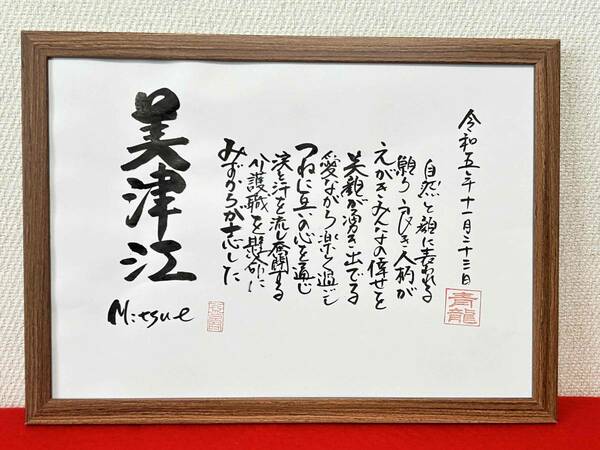 令和五年十一月二十三日
自然と顔に表われる
人柄が
えがきみんなの倖せを
笑顔が湧き出でる
愛ながら楽しく過ごし
つねに互いの心を通じ
涙と汗を流し奮闘する
介護職を懸命に
みずからが志した
青龍
美津江
Mitsue